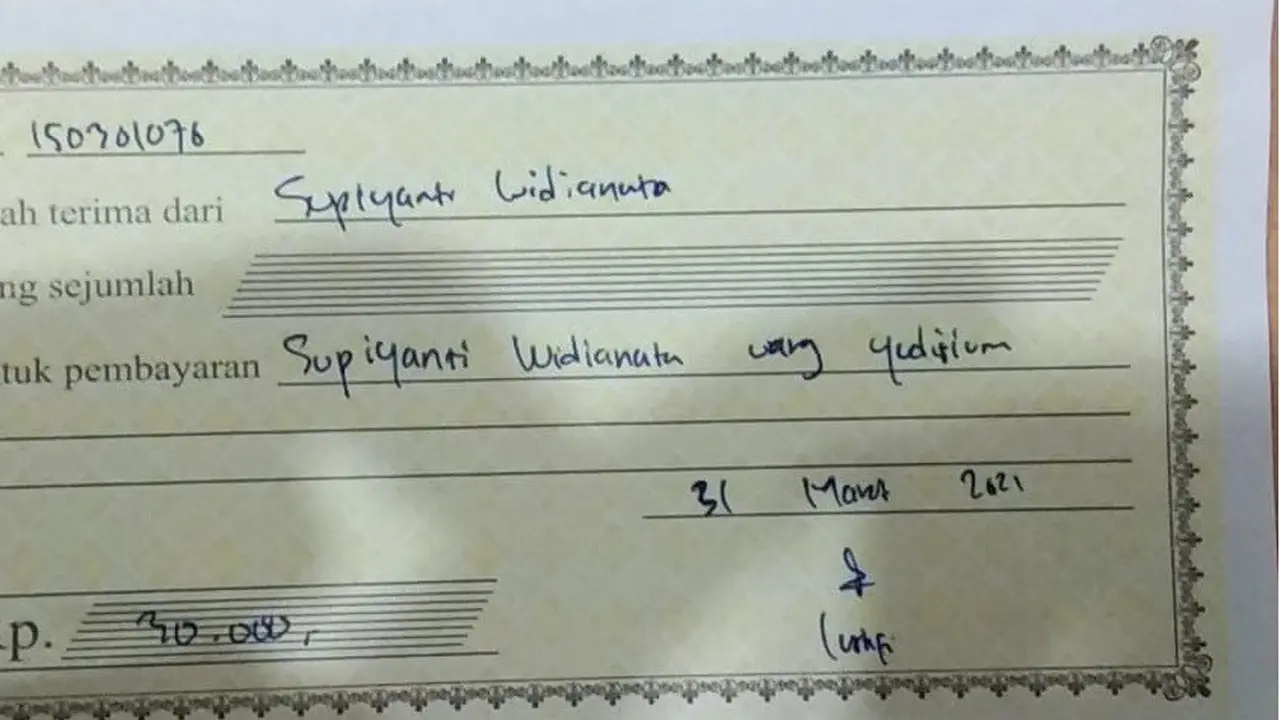 150301076
ah terima dari Supiyanti Widianata
ng sejumlah
tuk pembayaran Supiyanti Widianata uang yudisium
31 Maret 2021
p. 30.000,